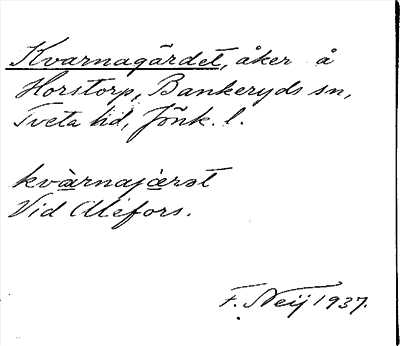 Kvarnagärdet, åker å
Horstorp, Bankeryds sn,
Tveta hd, Jönk. l.
kvàrnajærət
Vid Alefors.
F. Neij 1937.